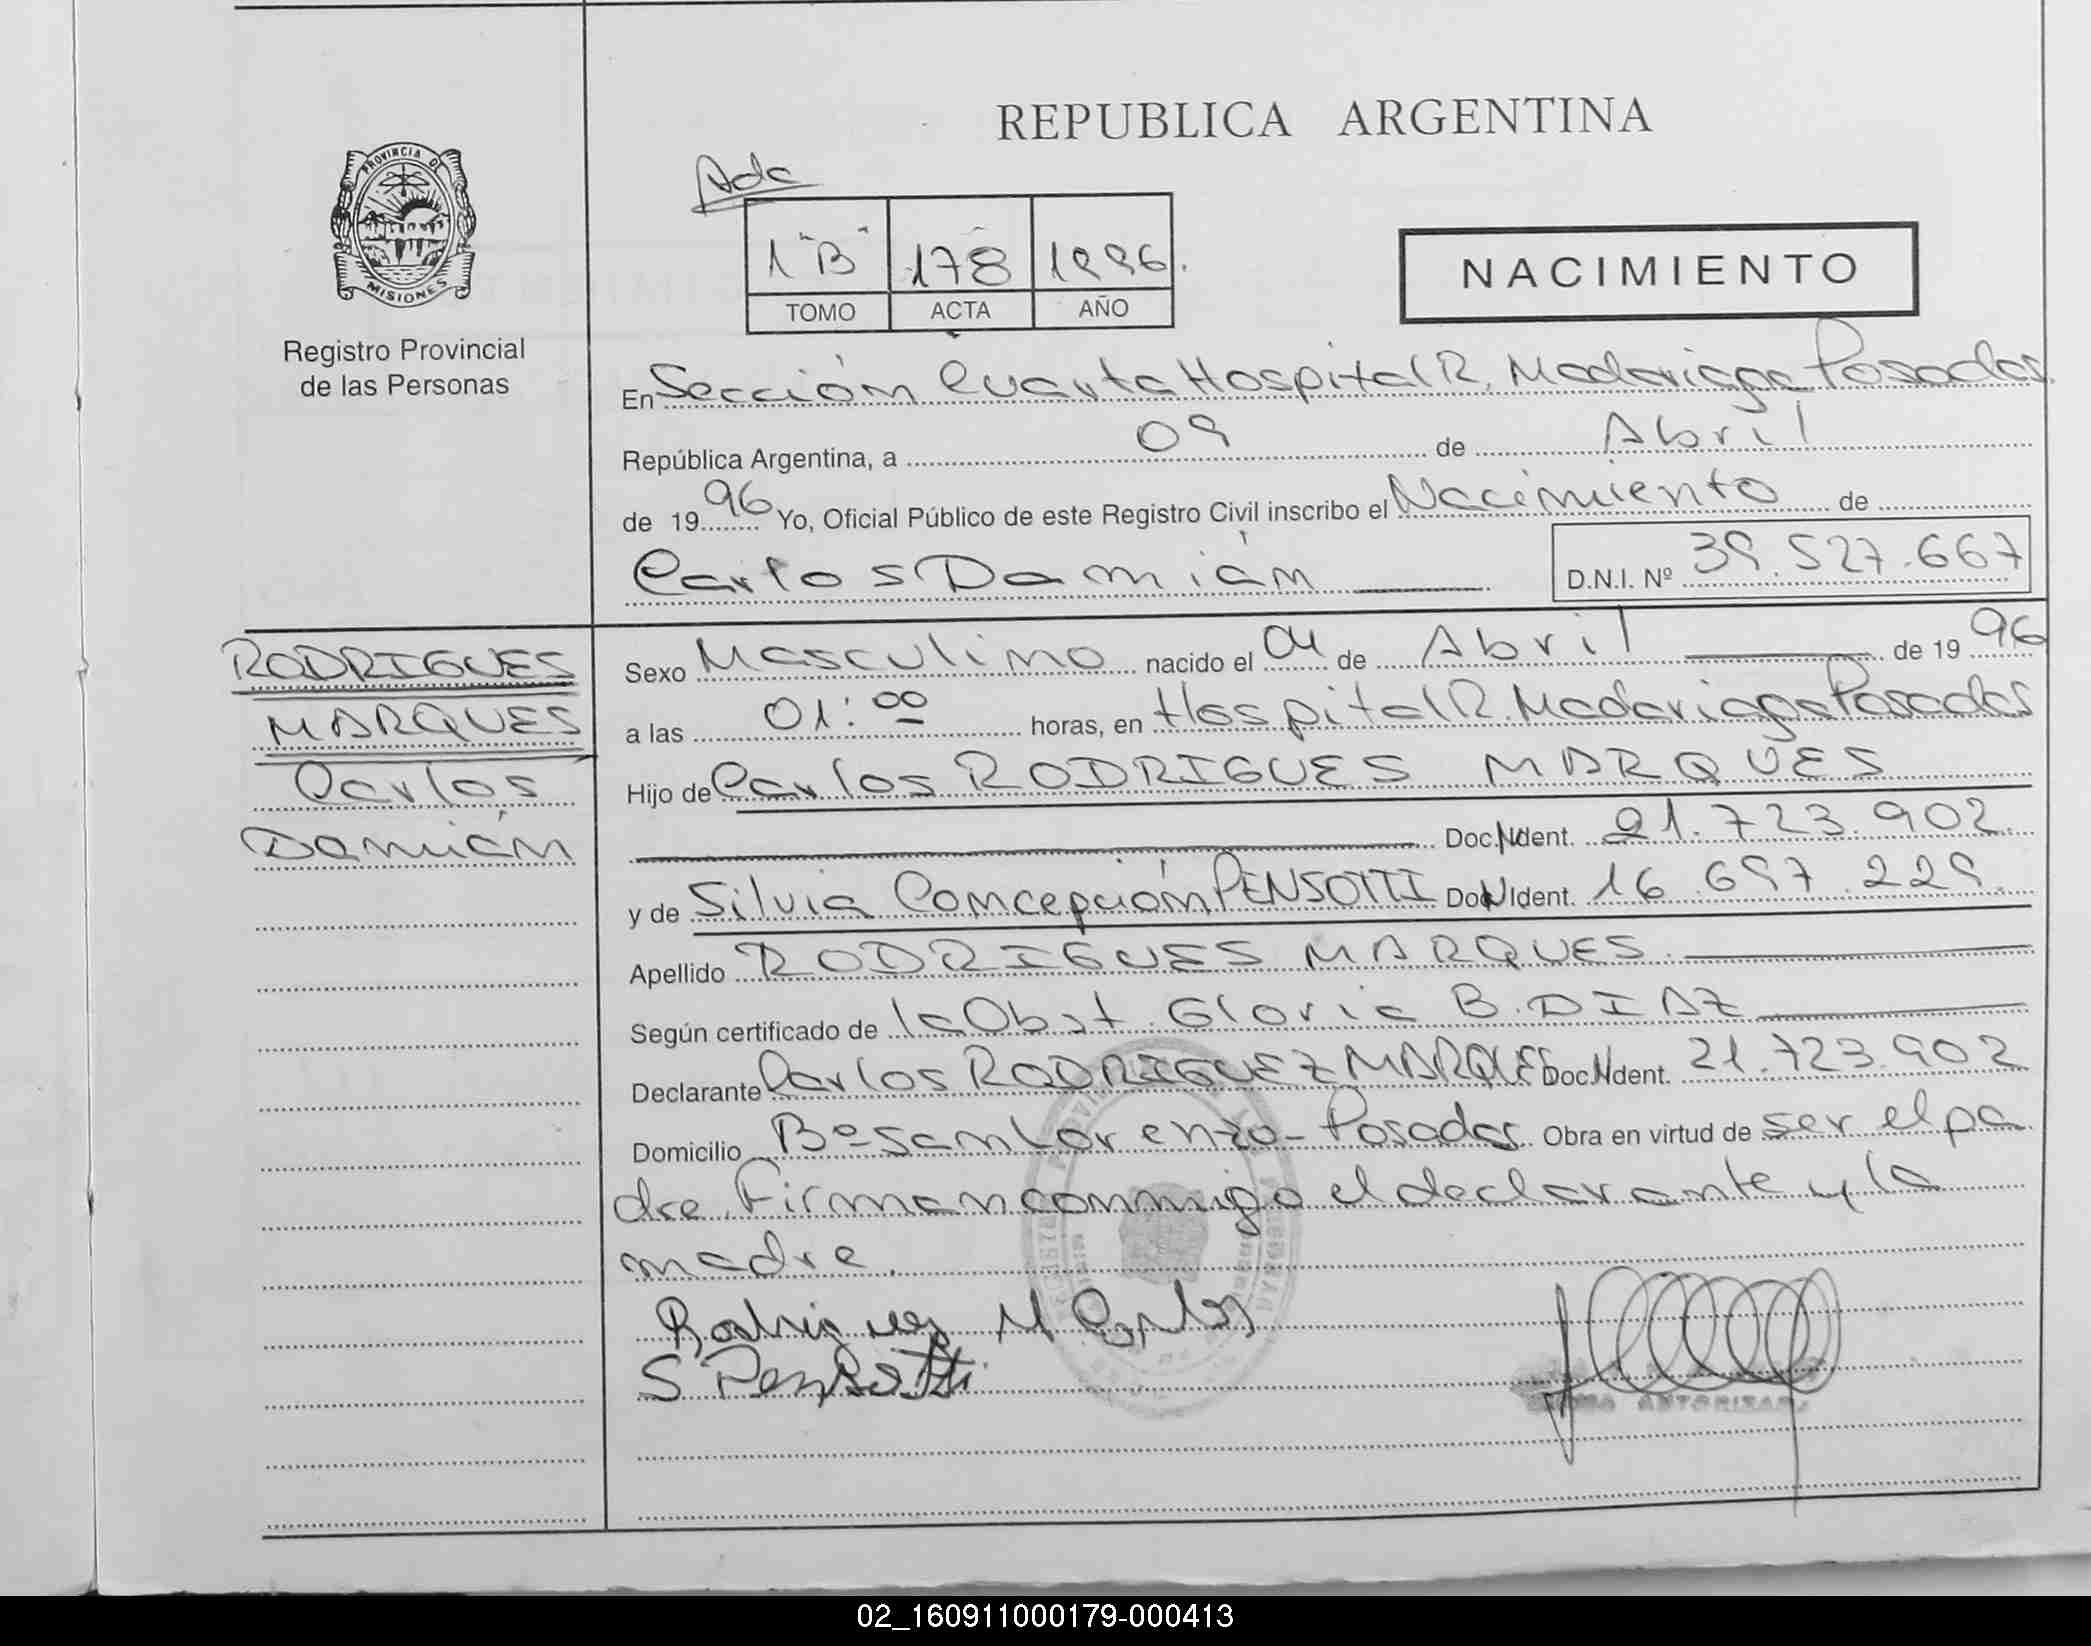 REPUBLICA ARGENTINA
PROVINCIA DE
MISIONES
Registro Provincial
de las Personas
Ada
1 "B" 178 1996.
TOMO ACTA AÑO
NACIMIENTO
En Sección Cuarta Hospital R. Madariaga Posadas.
República Argentina, a 09 de Abril
de 1996 Yo, Oficial Público de este Registro Civil inscribo el Nacimiento de
Carlos Damián D.N.I. Nº 39.527.667
RODRIGUES
MARQUES
Carlos
Damián
Sexo Masculino nacido el 04 de Abril de 1996
a las 01:00 horas, en Hospital R. Madariaga Posadas
Hijo de Carlos RODRIGUES MARQUES
Doc. Ident. 21.723.902.
y de Silvia Concepción PENSOTTI Doc. Ident. 16.697.229.
Apellido RODRIGUES MARQUES.
Según certificado de la Obst. Gloria B. DIAZ
Declarante Carlos RODRIGUEZ MARQUES Doc. Ident. 21.723.902
Domicilio Bº San Lorenzo - Posadas Obra en virtud de ser el pa
dre. Firman conmigo el declarante y la
madre.
Rodriguez M Carlos
S Pensotti
02_160911000179-000413